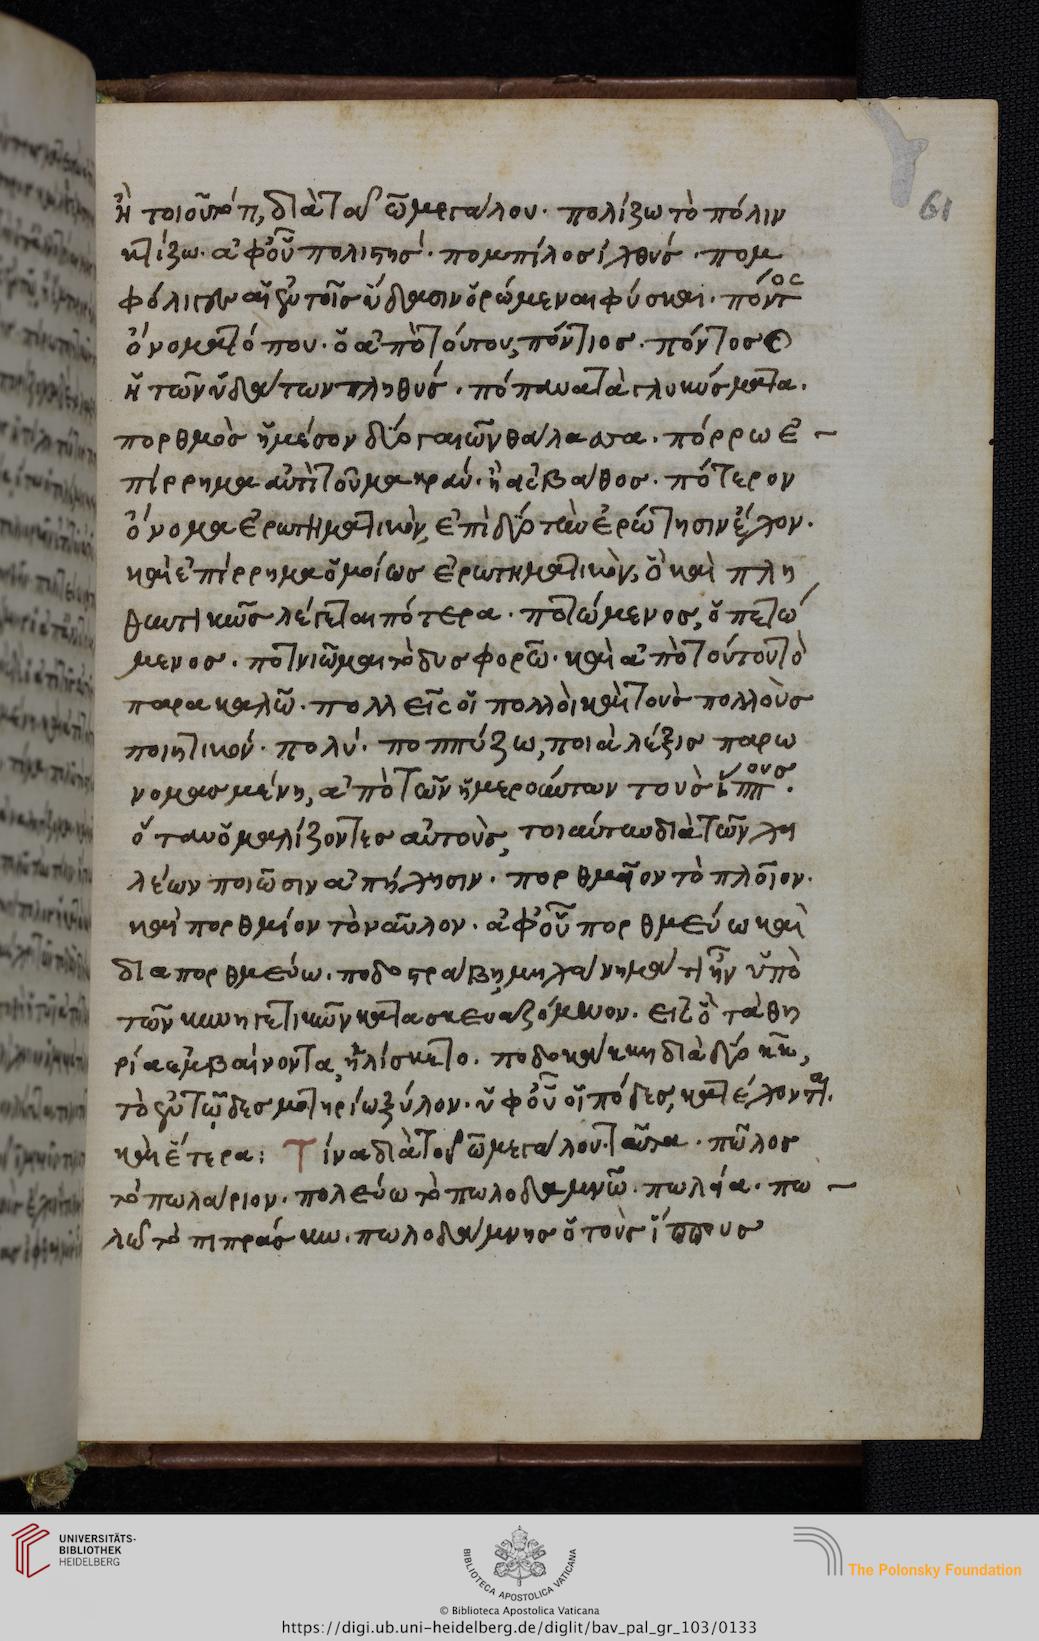 ἢ τοιοῦτό τι, διὰ τοῦ ω μεγάλου. πολίζω τὸ πόλιν
κτίζω. ἀφ' οὗ πολιτής. πομπίλος ἰχθύς. πομ
φόλιγγες αἱ ἐν τοῖς ὕδασιν ὁρώμεναι φύσκαι. πόντος
ὄνομα τόπου. ὁ ἀπὸ τούτου, πόντιος. πόντος
ἡ τῶν ὑδάτων πληθύς. πόπανα τὰ γλυκύσματα.
πορθμὸς ἡ μέσον δύο γαιῶν θάλασσα. πόρρω ἐ
πίρρημα ἀντὶ τοῦ μακράν. ἢ εἰς βάθος. πότερον
ὄνομα ἐρωτηματικὸν, ἐπὶ δύο τὴν ἐρώτησιν ἔχον.
καὶ ἐπίρρημα ὁμοίως ἐρωτηματικὸν, ὃ καὶ πλη
θυντικῶς λέγεται πότερα. ποτώμενος, ὁ πετώ
μενος. ποτνιῶμαι τὸ δυσφορῶ. καὶ ἀπὸ τούτου τὸ
παρακαλῶ. πολλεῖς οἱ πολλοὶ καὶ τοὺς πολλοὺς
ποιητικόν. πολύ. ποππύζω, ποιὰ λέξις παρω
νομασμένη, ἀπὸ τῶν ἡμερούντων τοὺς ἵππους.
ὅταν ὁμαλίζοντες αὐτοὺς, τοιαύτην διὰ τῶν χει
λέων ποιῶσιν ἀπήχησιν. πορθμεῖον τὸ πλοῖον.
καὶ πορθμίον τὸν ναῦλον. ἀφ' οὗ πορθμεύω καὶ
διαπορθμεύω. ποδοστράβη μηχάνημά τι ἦν ὑπὸ
τῶν κυνηγετικῶν κατασκευαζόμενον. εἰς ὃ τὰ θη
ρία ἐμβαίνοντα, ἡλίσκετο. ποδοκάκκη διὰ δύο κκ,
τὸ ἐν τῷ δεσμοτηρίω ξύλον. ὑφ' οὗ οἱ πόδες, κατέχονται.
καὶ ἕτερα: Τίνα διὰ τοῦ ω μεγάλου. ταῦτα. πῶλος
τὸ πωλάριον. πολεύω τὸ πωλοδαμνῶ. πωλεία. πω
λῶ τὸ πιπράσκω. πωλοδάμνης ὁ τοὺς ἵππους
61
UNIVERSITÄTS-
BIBLIOTHEK
HEIDELBERG
BIBLIOTECA APOSTOLICA VATICANA
The Polonsky Foundation
© Biblioteca Apostolica Vaticana
https://digi.ub.uni-heidelberg.de/diglit/bav_pal_gr_103/0133